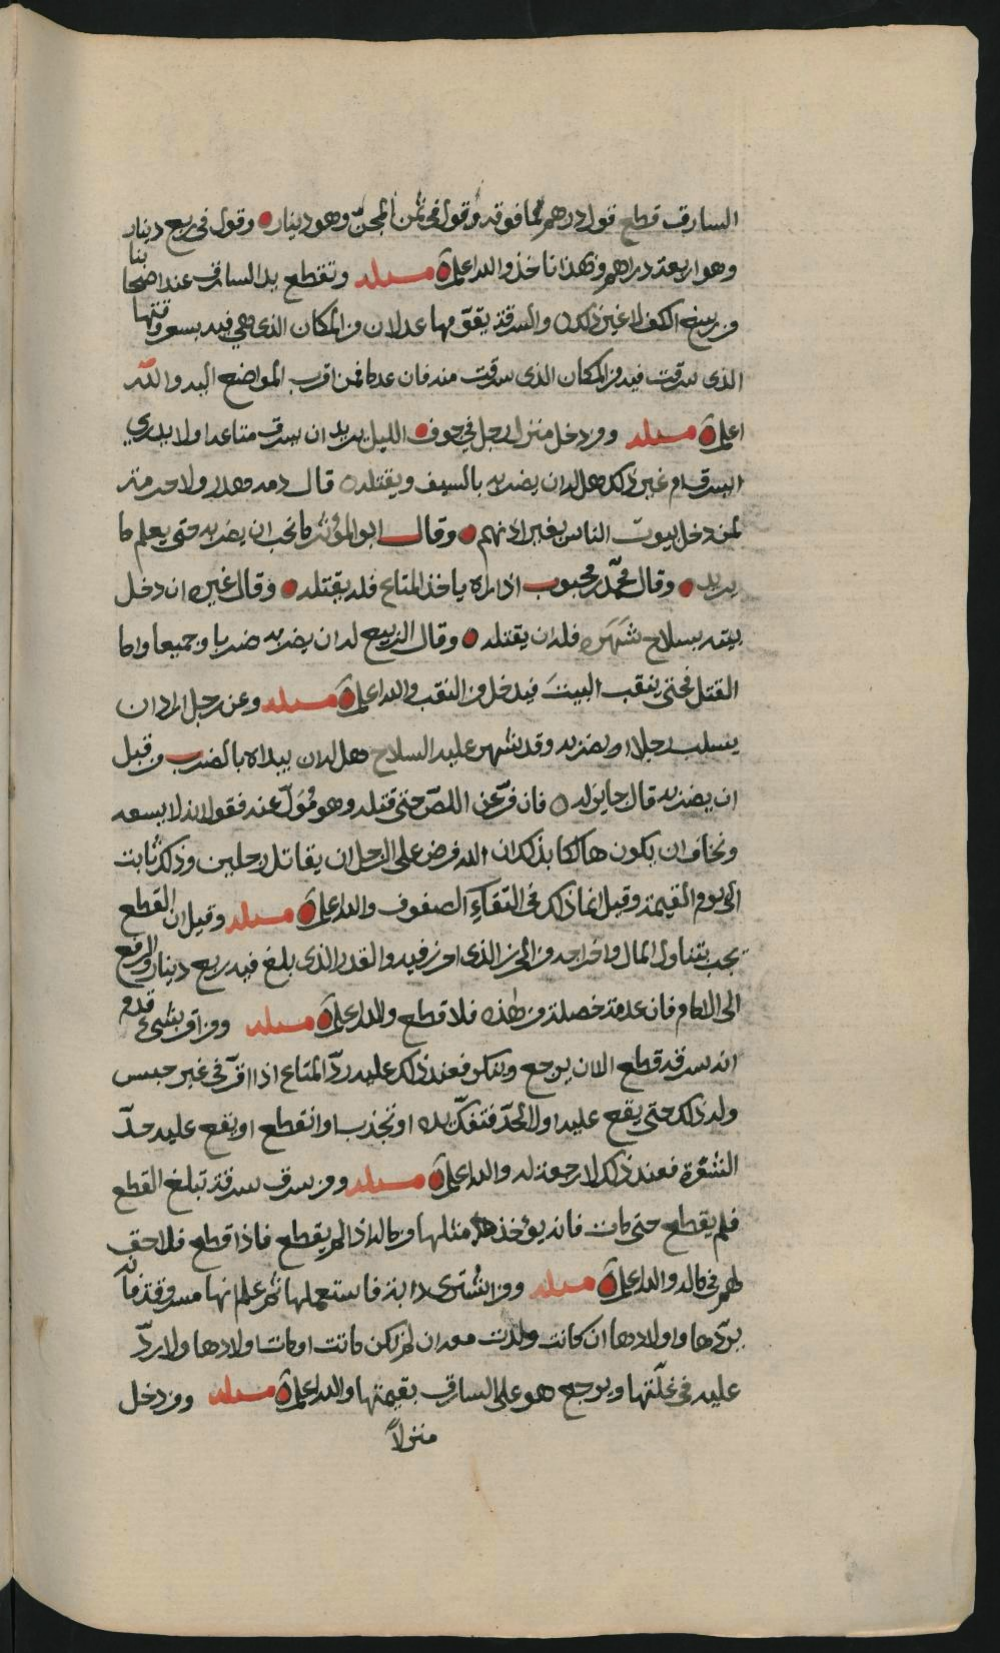 السارق قطع قول درهم فما فوقه وقول في ثمن المجنّ وهو دينار وقول في ربع دينار
وهو اربعة دراهم وبهذا ناخذ والله اعلم مسئلة وتقطع يد السارق عند اصحابنا
من رسغ الكف لا غير ذلك والسرقة يقوّمها عدلان من المكان الذي هي فيه بسعر وقتها
الذي سرقت فيه من المكان الذي سرقت منه فان عدما فمن اقرب المواضع اليه والله
اعلم مسئلة ومن دخل منزل رجل في جوف الليل يريد ان يسرق متاعه او لا يدري
السرق ام غير ذلك هل له ان يضربه بالسيف ويقتله قال دمه هدر ولا حرمة
لمن دخل بيوت الناس بغير اذنهم وقال ابو المؤثر ما نحب ان يضربه حتى يعلم ما
يريد وقال محمّد بن محبوب اذا راه ياخذ المتاع فله يقتله وقال غيره ان دخل
بيته بسلاح شَهَره فله ان يقتله وقال الربيع له ان يضربه ضربا وجميعا واما
القتل فحتى ينقب البيت فيدخل من النقب والله اعلم مسئلة وعن رجل اراد ان
يسلب رجلا او يضربه وقد شهر عليه السلاح هل له ان يبداه بالضرب من قبل
ان يضربه قال جايز له فان فرّ عن اللصّ حتى قتله وهو مُوَلّ عنه فقول انه لا يسعه
ونخاف ان يكون هالكا بذلك ان الله فرض على الرجل ان يقاتل رجلين وذلك ثابت
الى يوم القيمة وقيل انما ذلك في التقاءِ الصفوف والله اعلم مسئلة وقيل ان القطع
يجب بتناول المال واخراجه من الحرز الذي احرز فيه والقدر الذي بلغ فيه ربع دينار والرفع
الى الامام فان عدمة خصلة من هذه فلا قطع والله اعلم مسئلة ومن اقر بشيء قدم
انه سرقه قطع الا ان يرجع وينكر فعند ذلك عليه ردّ المتاع اذا اقرّ في غير حبس
وله ذلك حتى يقع عليه اول الحدّ فتفكّ يده او تجذب او انقطع او يقع عليه حدّ
الشفرة فعند ذلك لا رجعة له والله اعلم مسئلة ومن سرق سرقة تبلغ القطع
فلم يقطع حتى مات فانه يؤخذ مثلها من ماله اذا لم يقطع فاذا قطع فلا حق
لهم في ماله والله اعلم مسئلة ومن اشترى دابة فاستعملها ثم علم انها مسروقة فانه
يردّها واولادها ان كانت ولدت معه ان لم تكن ماتت او مات اولادها ولا ردّ
عليه في غلّتها ويرجع هو على السارق بقيمتها والله اعلم مسئلة ومن دخل
منزلاً